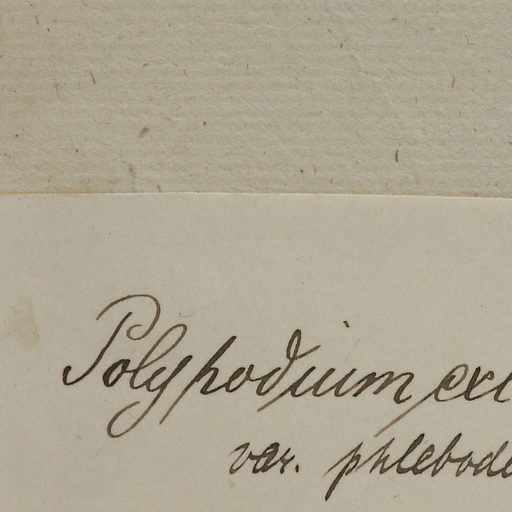 Polypodium exc
var. phlebode